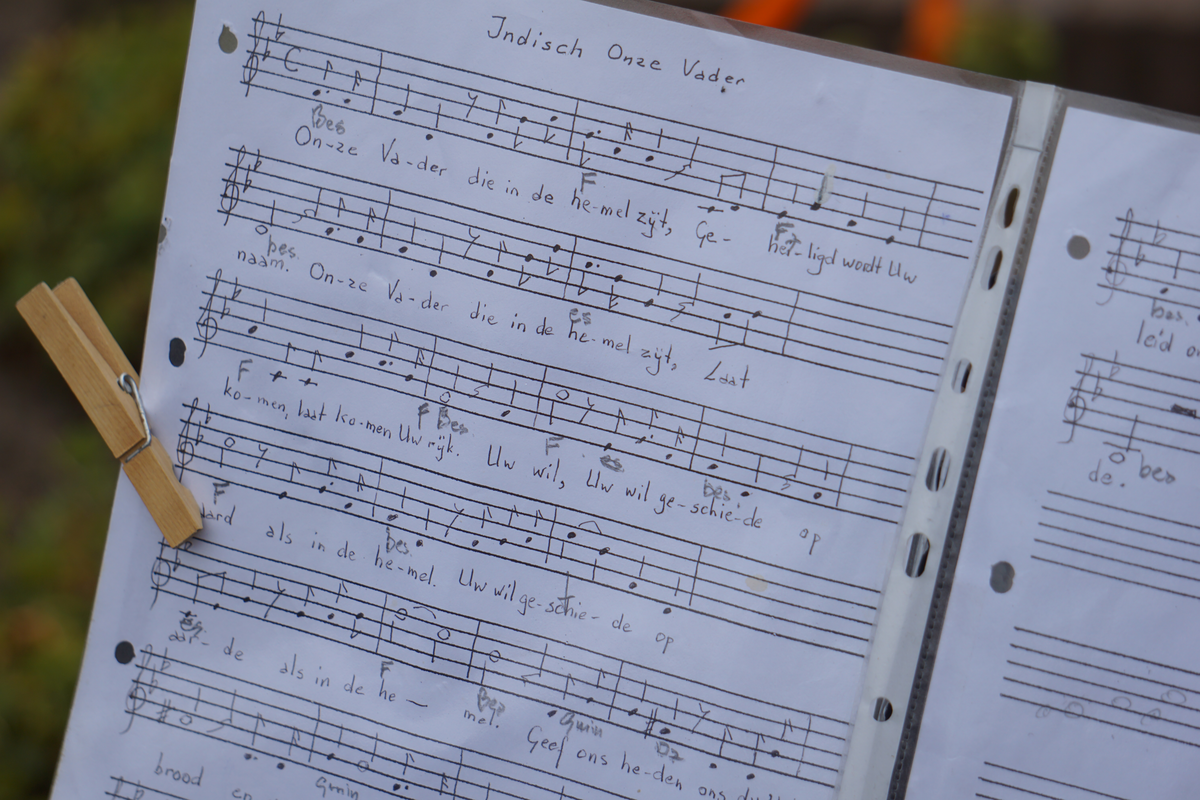 Indisch Onze Vader
Bes F F7
On-ze Va-der die in de he-mel zijt, Ge- hei-ligd wordt Uw
bes. es
naam. On-ze Va-der die in de he-mel zijt, Laat
F F Bes F es bes
ko-men, laat ko-men Uw rijk. Uw wil, Uw wil ge-schie-de op
F bes.
aard als in de he-mel. Uw wil ge-schie-de op
es F Bes Gmin D7
aar-de als in de he- mel. Geef ons he-den ons
Gmin
brood en
bes.
leid
bes
de.